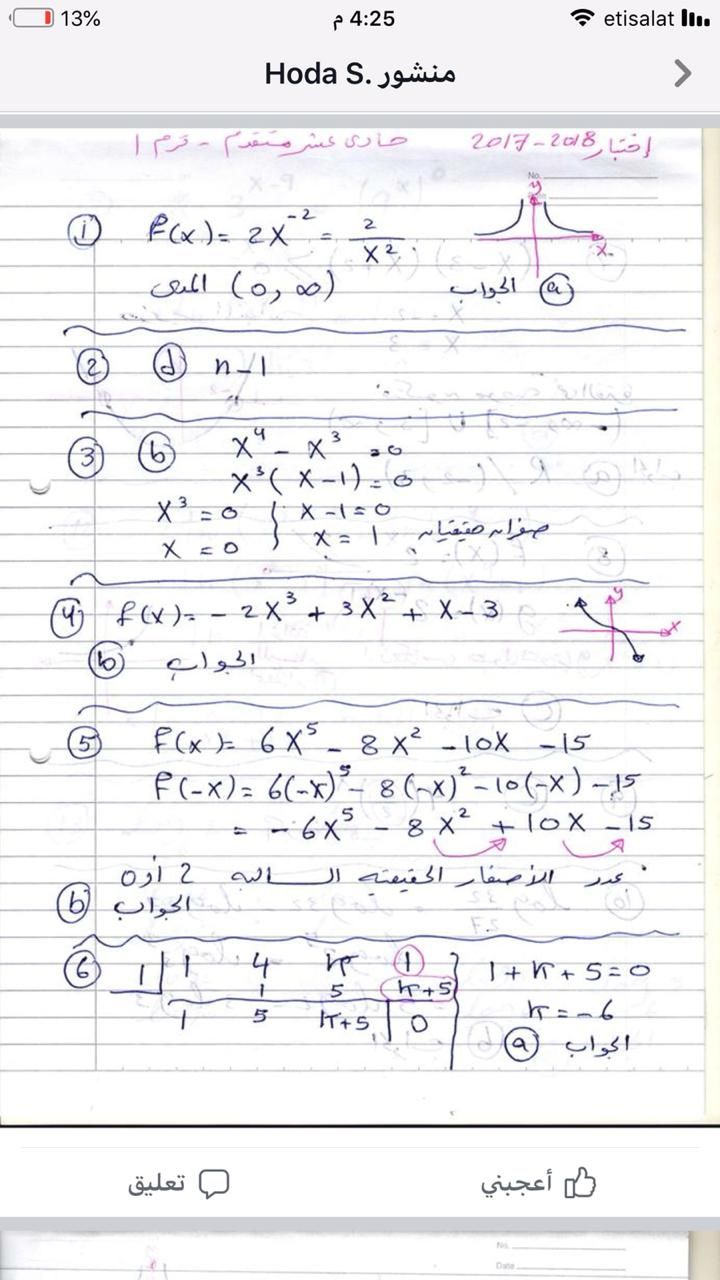 13%
4:25 م
etisalat
منشور Hoda S.
إختبار 2017-2018 حادى عشر متقدم - ترم 1
No.
① f(x) = 2x⁻² = 2/x²
y
x
المدى (0, ∞) الجواب ⓐ
② ⓓ n-1
③ ⓑ x⁴ - x³ = 0
x³(x-1) = 0
x³ = 0 } x-1 = 0
x = 0 } x = 1 صفران حقيقيان
④ f(x) = -2x³ + 3x² + x - 3
y
x
ⓑ الجواب
⑤ f(x) = 6x⁵ - 8x² - 10x - 15
f(-x) = 6(-x)⁵ - 8(-x)² - 10(-x) - 15
= -6x⁵ - 8x² + 10x - 15
عدد الأصفار الحقيقية السالبة 2 أو 0
ⓑ الجواب
⑥ 1| 1 4 k 1 } 1+k+5=0
1 5 k+5 k = -6
1 5 k+5 | 0
الجواب ⓐ
أعجبني
تعليق
No.
Date